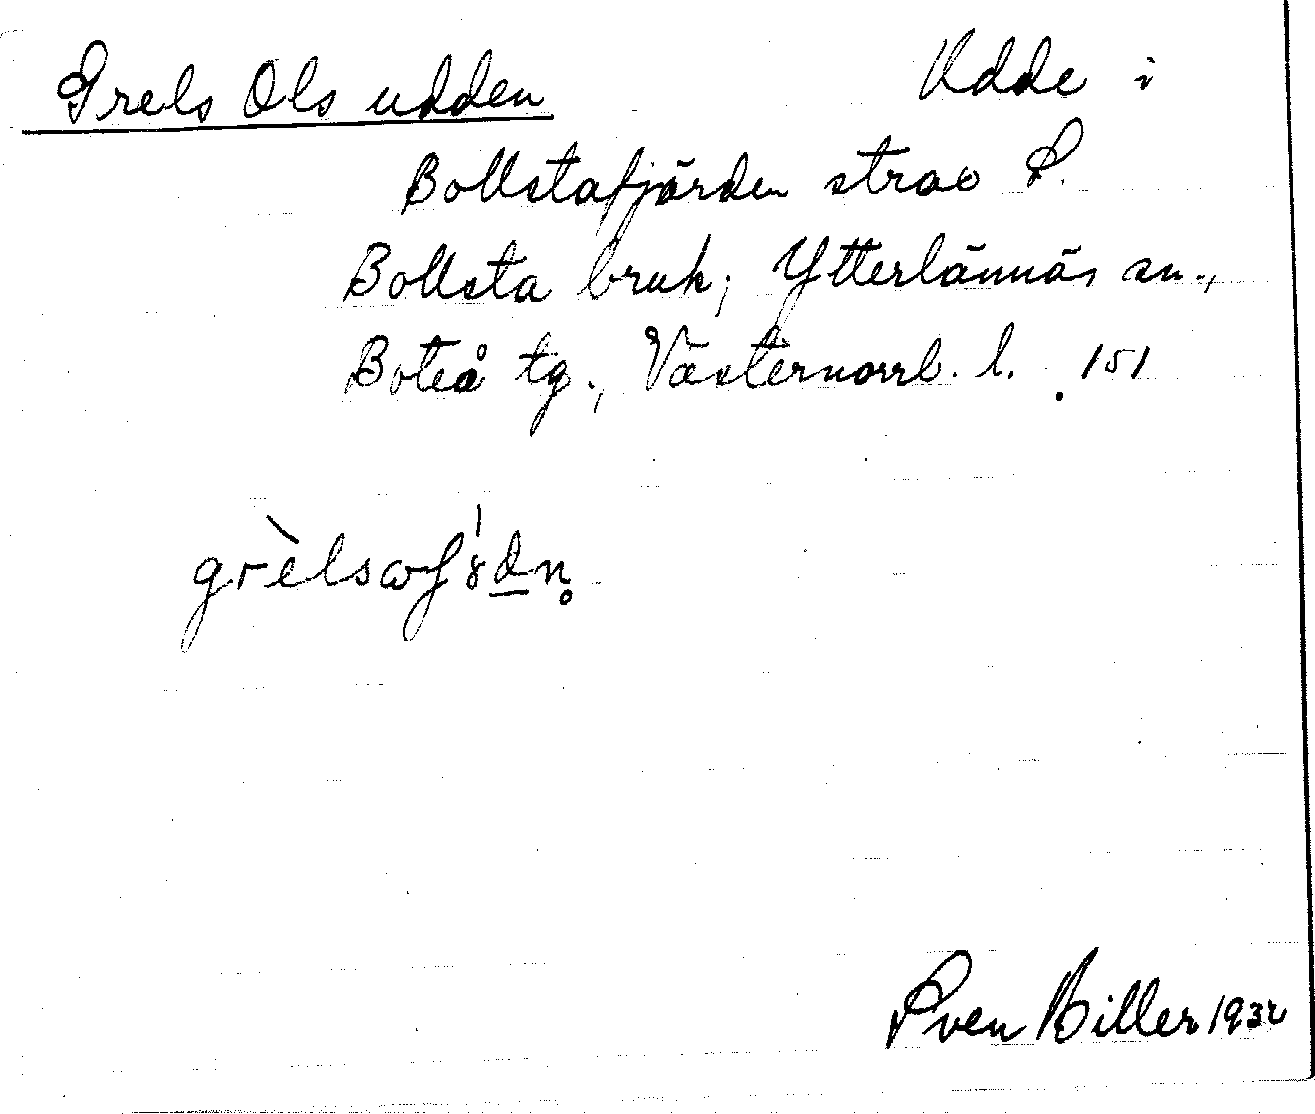 Grels Ols udden Udde i
Bollstafjärden strax S.
Bollsta bruk; Ytterlännäs sn.,
Boteå tg., Västernorrl. l. 151
Sven Hiller 1932